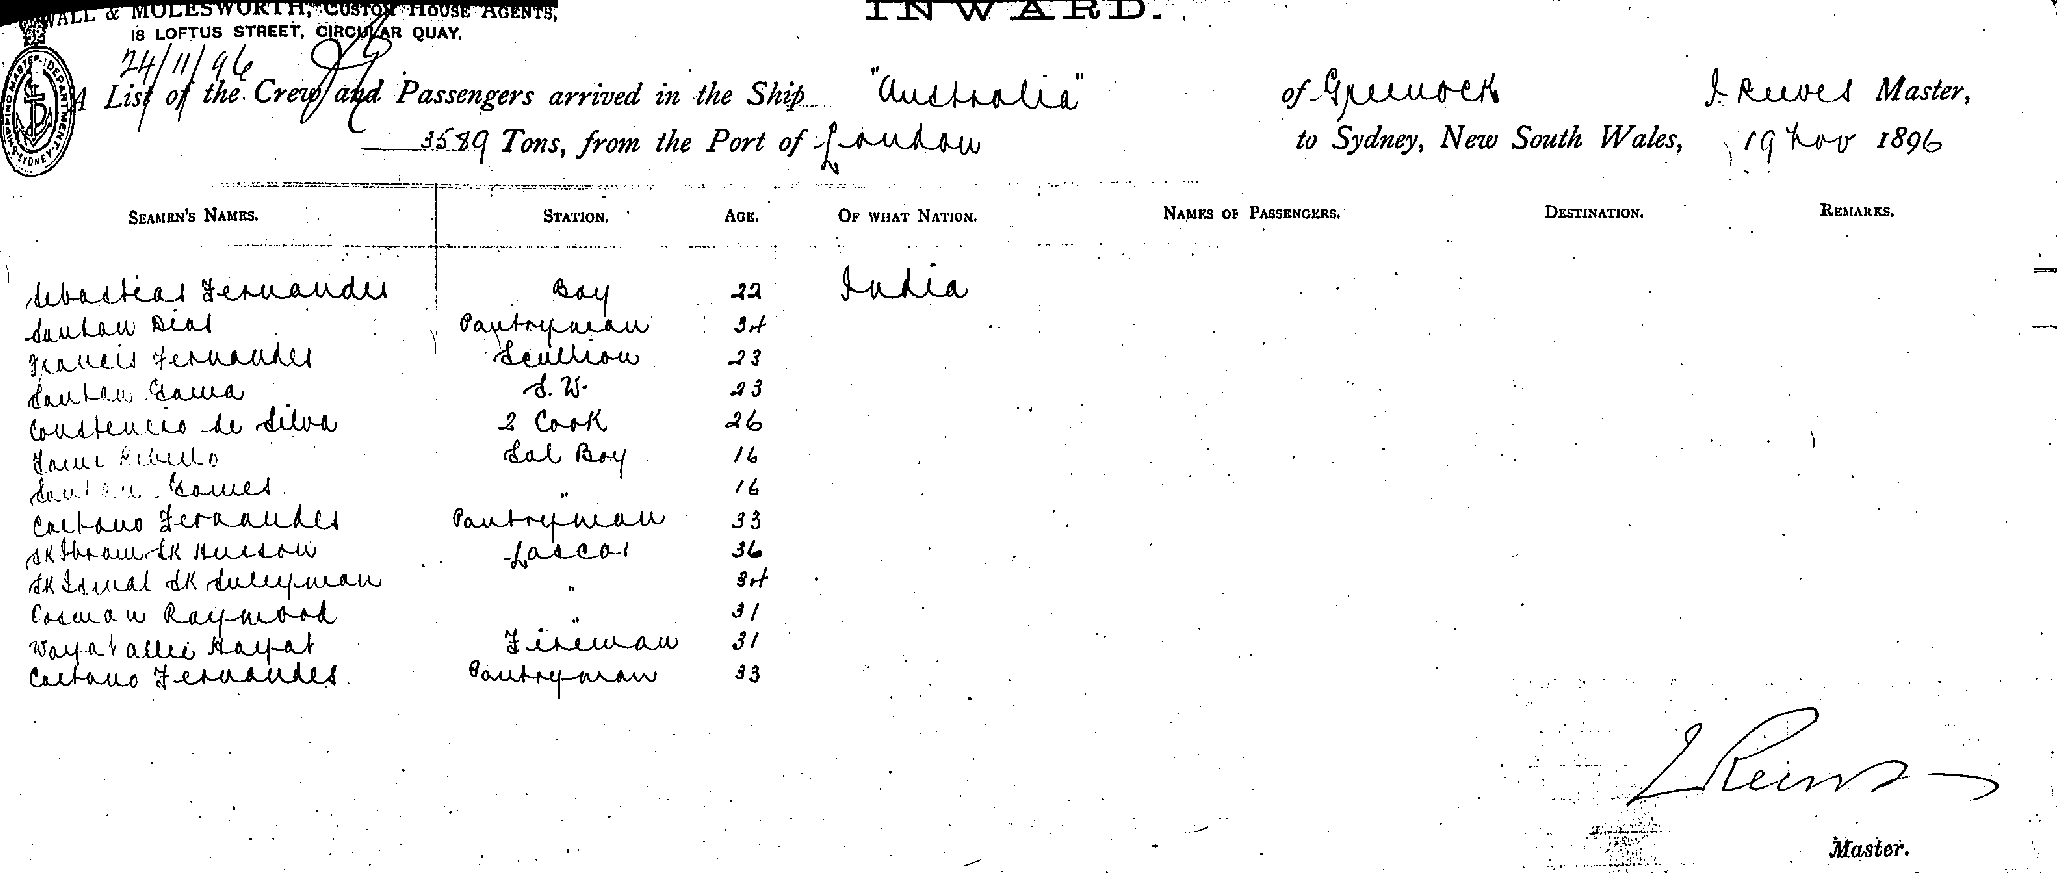 WALL & MOLESWORTH, CUSTOM HOUSE AGENTS,
18 LOFTUS STREET, CIRCULAR QUAY.
INWARD.
24/11/96
A List of the Crew and Passengers arrived in the Ship "Australia" of Greenock J Reeves Master,
3589 Tons, from the Port of London to Sydney, New South Wales, 19 Nov 1896
SEAMEN'S NAMES. STATION. AGE. OF WHAT NATION. NAMES OF PASSENGERS. DESTINATION. REMARKS.
Sebastias Fernandes Boy 22 India
Santan Dias Pantryman 34
Francis Fernandes Scullion 23
Santan Gama S.W. 23
Constencio de Silva 2 Cook 26
Rebello Sal Boy 16
Santan Gomes " 16
Caetano Fernandes Pantryman 33
SK Ibram SK Husson Lascar 36
SK Ismal SK Suleyman " 34
Cosman Raymood " 31
Hayat Fireman 31
Caetano Fernandes Pantryman 33
Master.